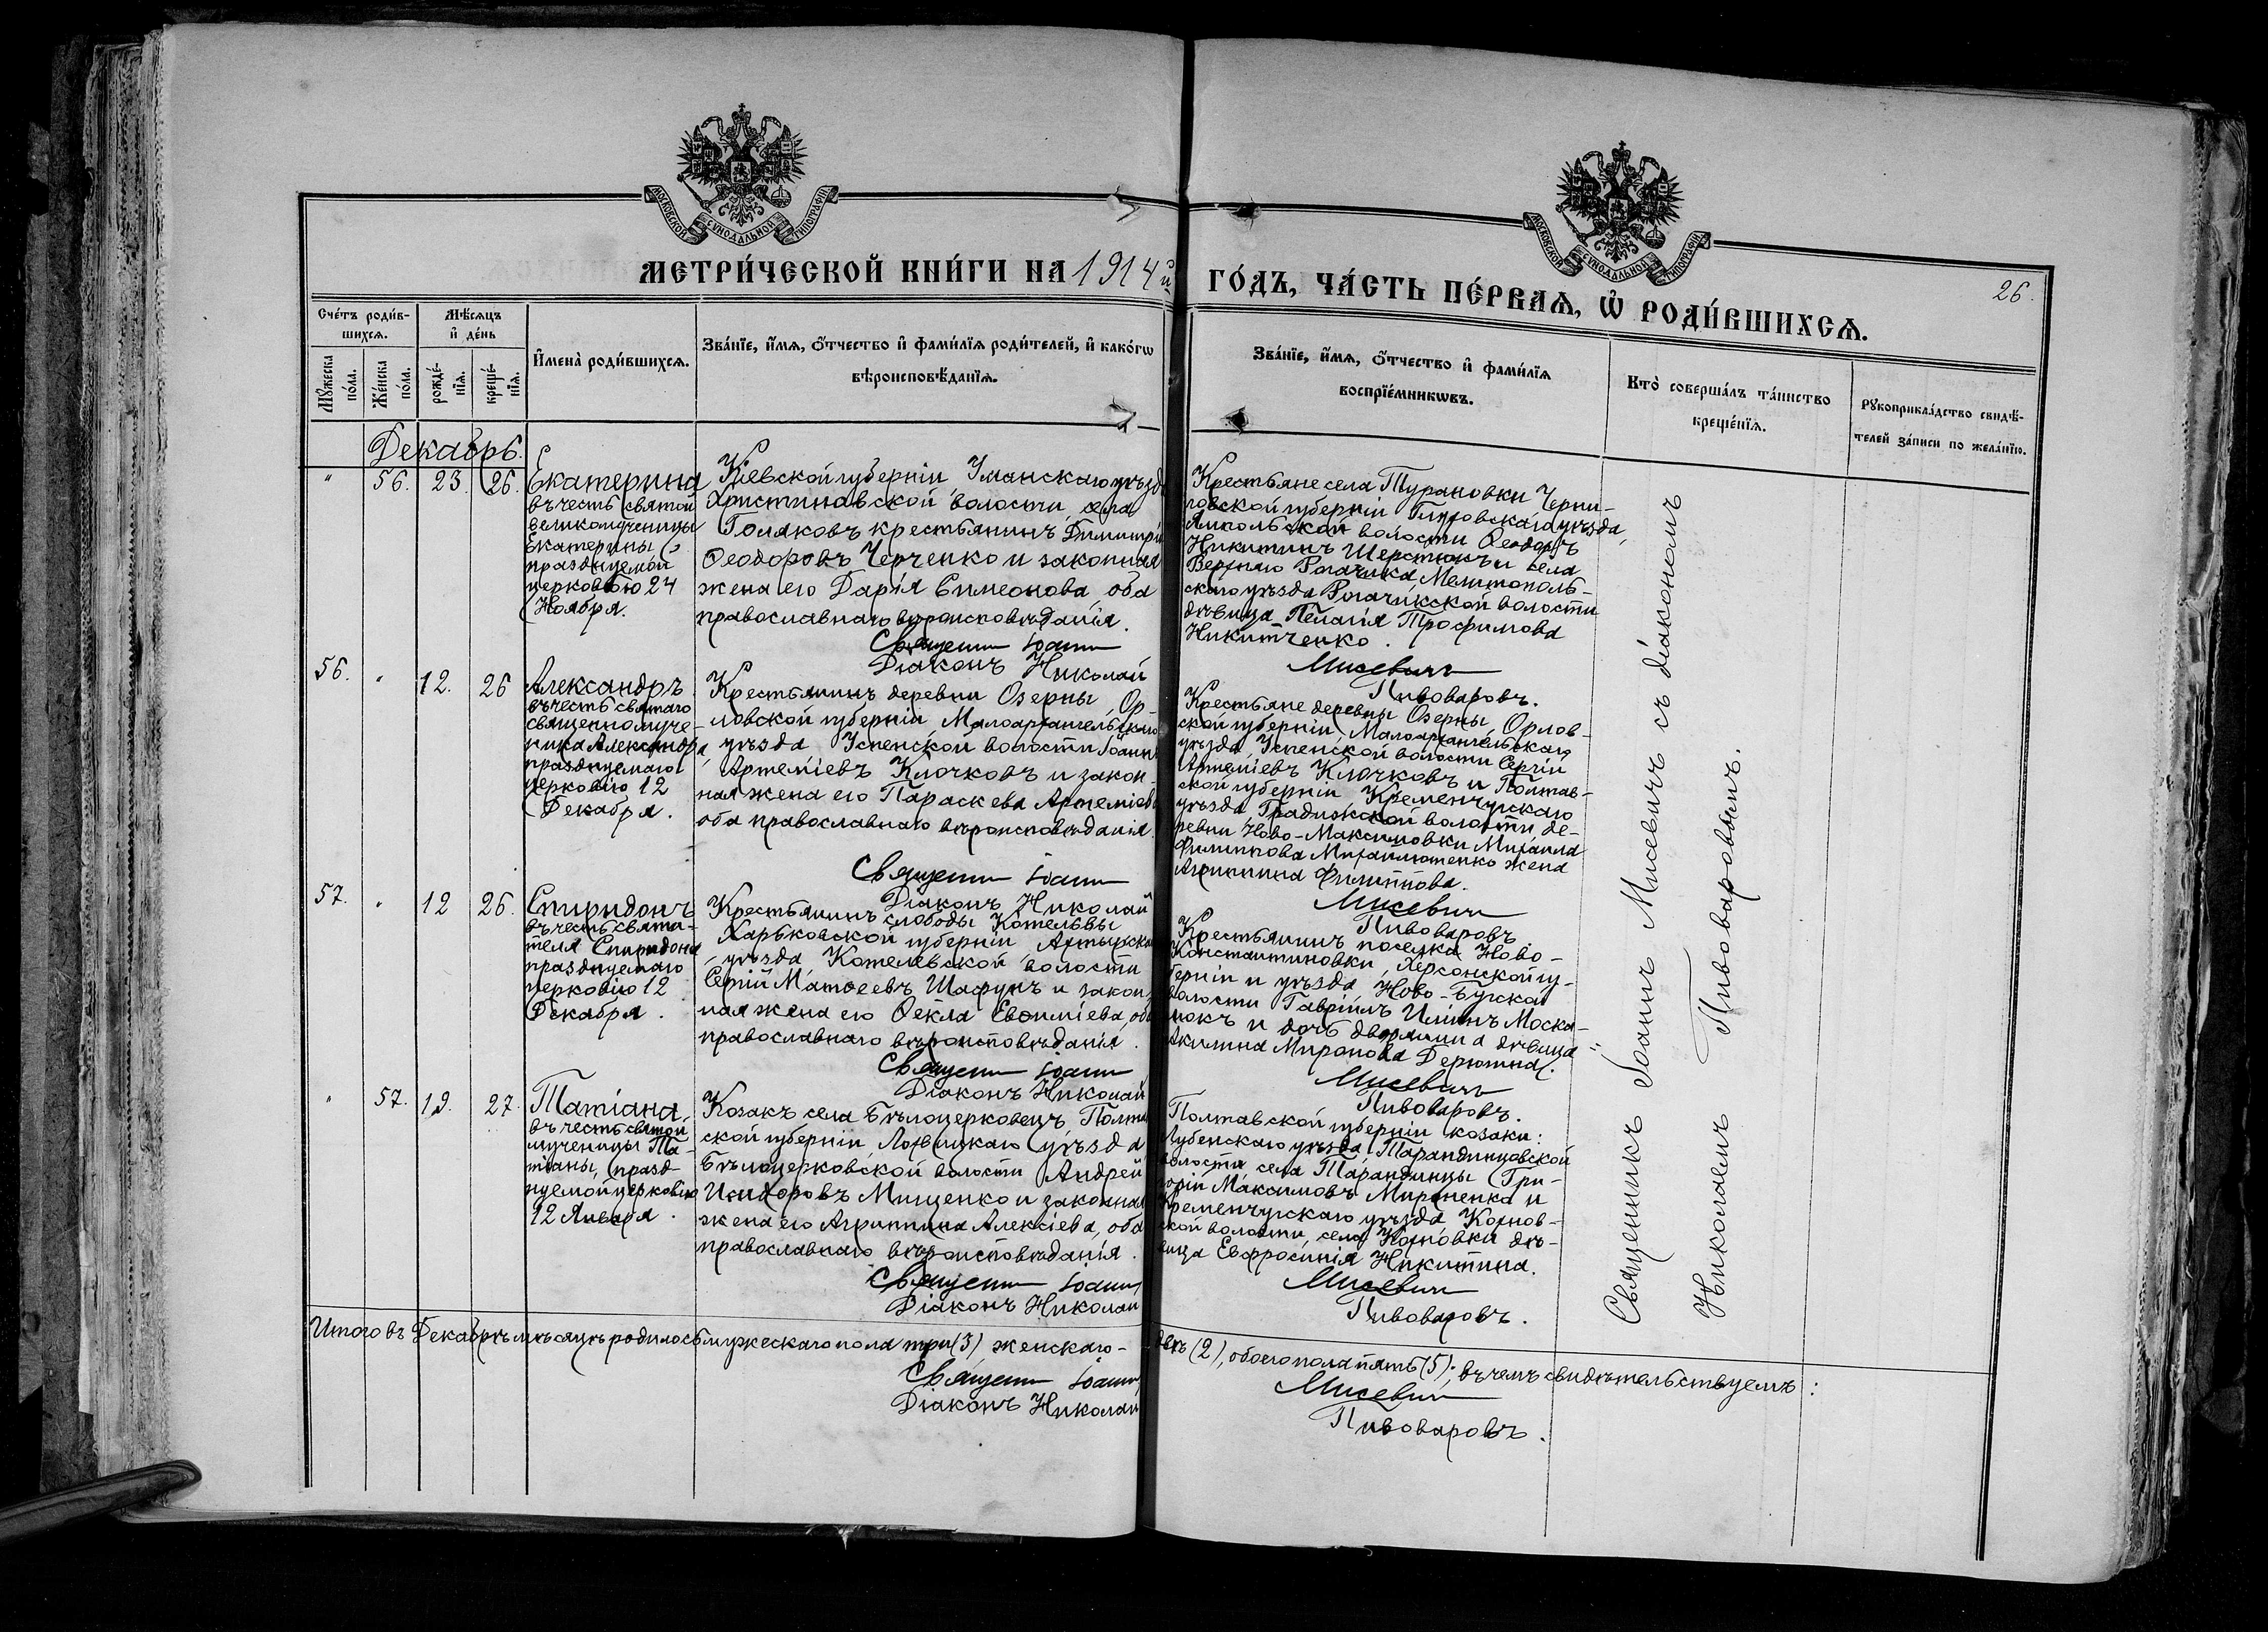 МОСКОВСКОЙ СѴНОДАЛЬНОЙ ТИПОГРАФІИ
МОСКОВСКОЙ СѴНОДАЛЬНОЙ ТИПОГРАФІИ
МЕТРИ́ЧЕСКОЙ КНИ́ГИ НА 1914й ГО́ДЪ, ЧА́СТЬ ПЕ́РВАѦ, Ѽ РОДИ́ВШИХСѦ.
26.
Сче́тъ роди́в-
шихсѧ.
Мꙋжеска
по́ла.
Же́нска
по́ла.
Мѣ́сяцъ
и҆ де́нь
рожде́-
нїѧ.
креще́-
нїѧ.
И҆мена̀ роди́вшихсѧ.
Зва́нїе, и҆́мѧ, ѻ҆́тчество и҆ фами́лїѧ роди́телей, и҆ како́гѡ
вѣроисповѣ́данїѧ.
Зва́нїе, и҆́мѧ, ѻ҆́тчество и҆ фами́лїѧ
воспрїе́мникѡвъ.
Кто̀ соверша́лъ та́инство
креще́нїѧ.
Рꙋкоприкла́дство свидѣ́-
телей за́писи по жела́нїю.
Декабрь.
" 56. 23. 26.
Екатерина
въ честь святой
великомученицы
Екатерины
празднуемой
церковью 24
Ноября.
Кіевской губерніи, Уманскаго уѣзда
Христиновской волости, села
Поляковъ крестьянинъ Димитрій
Ѳеодоровъ Черченко и законная
жена его Дарія Симеонова, оба
православнаго вѣроисповѣданія.
Священ Іоанн
Діаконъ Николай
Крестьяне села Турановки Черни-
говской губерніи Глуховскаго уѣзда,
Ямпольской волости Ѳеодоръ
Никитинъ Шерстюкъ и села
Верхняго Рогачика, Мелитополь-
скаго уѣзда Рогачикской волости
дѣвица Пелагія Трофимова
Никитченко.
Мисевичъ
Пивоваровъ.
56. " 12. 26
Александръ
въ честь святаго
священномуче-
ника Александра,
празднуемаго
церковію 12
Декабря.
Крестьянинъ деревни Озерны, Ор-
ловской губерніи, Малоархангельскаго
уѣзда, Успенской волости Іоаннъ
Артеміевъ Клочковъ и закон-
ная жена его Параскева Артеміева
оба православнаго вѣроисповѣданія.
Священ Іоанн
Діаконъ Николай
Крестьяне деревны Озерны, Орлов-
ской губерніи, Малоархангельскаго
уѣзда, Успенской волости Сергій
Артеміевъ Клочковъ и Полтав-
ской губерніи Кременчугскаго
уѣзда, Градижской волости, де-
ревни Ново-Максимовки Михаила
Филиппова Михайлютенко жена
Агриппина Филиппова.
Мисевич
Пивоваровъ
57. " 12 26.
Спиридонъ
въ честь святи-
теля Спиридона
празднуемаго
церковію 12
Декабря.
Крестьянинъ слободы Котельвы
Харьковской губерніи, Ахтырска
уѣзда, Котелевской волости
Сергій Матѳеевъ Шафунъ и закон-
ная жена его Ѳекла Евѳиміева, оба
православнаго вѣроисповѣданія.
Священ Іоанн
Діаконъ Николай
Крестьянинъ поселка Ново-
Константиновки, Херсонской гу-
берніи и уѣзда, Ново-Бугской
волости Гавріилъ Илiинъ Моска-
люкъ и дочь дворянина дѣвица
Акилина Миронова Дерюгина.
Мисевичъ
Пивоваровъ.
" 57. 19. 27.
Татіана
въ честь святой
мученицы Та-
тіаны, празд-
нуемой церковію
12 Января.
Козакъ села Бѣлоцерковецъ, Полта
ской губерніи Лохвицкаго уѣзда
Бѣлоцерковской волости Андрей
Исидоровъ Мищенко и законная
жена его Агриппина Алексіева, оба
православнаго вѣроисповѣданія.
Священ Іоанн
Діаконъ Николай
Полтавской губерніи козаки:
Лубенскаго уѣзда, Тарандинцовской
волости села Тарандинцы Гри-
горій Максимовъ Мироненко и
Кременчугскаго уѣзда Кохнов-
ской волости, села Кохновки дѣ-
вица Евфросинія Никитина.
Мисевич
Пивоваровъ.
Священникъ Іоаннъ Мисевичъ съ діакономъ
Николаемъ Пивоваровымъ.
Итого въ Декабрѣ мѣсяцѣ родилось мужескаго пола три (3), женскаго - двѣ (2), обоего пола пять (5); въ чемъ свидѣтельствуемъ:
Священ Іоанн Мисевич
Діаконъ Николай Пивоваровъ.